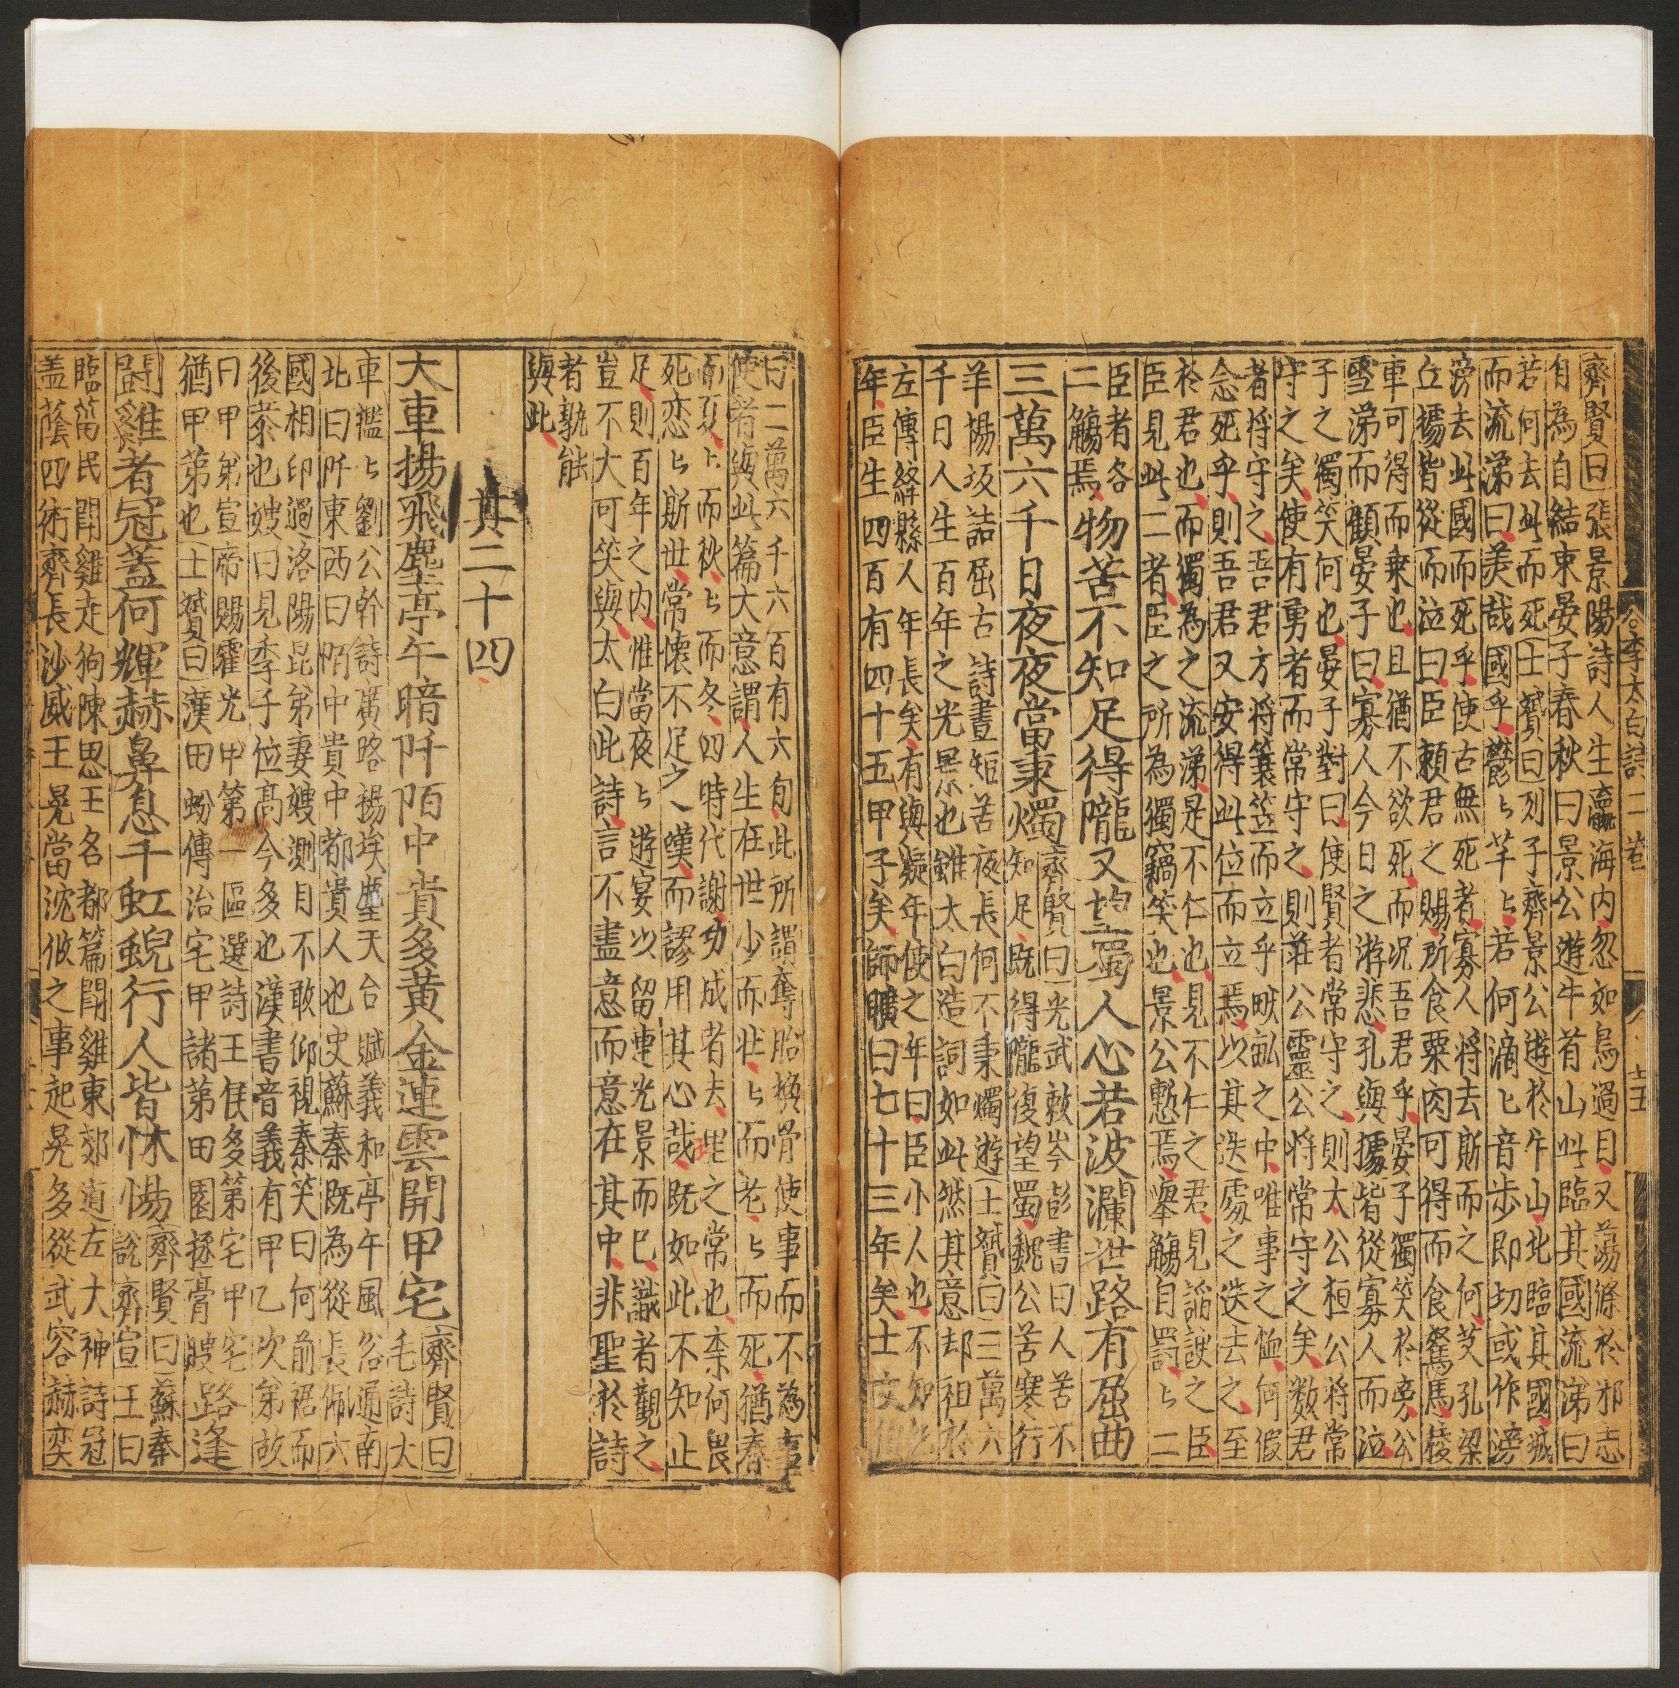 齊賢曰張景陽詩人生瀛海内忽如鳥過目又蕩滌於邪志
自為自結束晏子春秋曰景公遊牛首山北臨其國流涕曰
若何去此而死士贇曰列子齊景公遊於牛山北臨其國城
而流涕曰羙哉國乎欝〻芊〻若何滴〻音步郎切或作滂
滂去此國而死乎使古無死者寡人將去斯而之何艾孔梁
丘據皆從而泣曰臣頼君之賜所食粟肉可得而食駑馬稜
車可得而乗也且猶不欲死而况吾君乎晏子獨笑於旁公
雪涕而顧晏子曰寡人今日之游悲孔與據皆從寡人而泣
子之獨笑何也晏子對曰使賢者常守之則太公桓公將常
守之矣使有勇者而常守之則莊公靈公將常守之矣数君
者将守之吾君方将簑笠而立乎畎畝之中唯事之恤何假
念死乎則吾君又安得此位而立焉以其迭處之迭去之至
於君也而獨為之流涕是不仁也見不仁之君見謟諛之臣
臣見此二者臣之所為獨竊笑也景公慙焉舉觴自罰〻二
臣者各
二觴焉物苦不知足得隴又望蜀人心若波瀾世路有屈曲
三萬六千日夜夜當秉燭齊賢曰光武敕岑彭書曰人苦不
知知足既得隴復望蜀魏公苦寒行
羊膓坂詰屈古詩晝短苦夜長何不秉燭遊士贇曰三萬六
千日人生百年之光景也雖太白造詞如此然其意却祖於
左傳絳縣人年長矣有與疑年使之年曰臣小人也不知紀
年臣生四百有四十五甲子矣師曠曰七十三年矣士文伯
李太白詩二卷
十五
曰二萬六千六百有六旬此所謂奪胎換骨使事而不為事
使者與此篇大意謂人生在世少而壯〻而老〻而死猶春
而夏〻而秋〻而冬四時代謝功成者去理之常也柰何畏
死恋〻斯世常懷不足之嘆而謬用其心哉既如此不知止
足則百年之内惟當夜〻遊宴以留連光景而巳識者觀之
豈不大可笑與太白此詩言不盡意而意在其中非聖於詩
者孰能
與此
其二十四
大車揚飛塵亭午暗阡陌中貴多黄金連雲開甲宅齊賢曰
毛詩大
車襤〻劉公幹詩廣路揚埃塵天台賦義和亭午風俗通南
北曰阡東西曰陌中貴中都貴人也史蘇秦既為從長佩六
國相印過洛陽昆弟妻嫂測目不敢仰視秦笑曰何前裾而
後恭也嫂曰見季子位髙今多也漢書音義有甲乙次第故
曰甲第宣帝賜霍光甲第一區選詩王侯多第宅甲宅
猶甲第也士贇曰漢田蚡傳治宅甲諸第田園極膏腴路逢
鬭雞者冠蓋何輝赫鼻息干虹蜺行人皆怵惕齊賢曰蘇秦
說齊宣王曰
臨菑民鬭雞走狗陳思王名都篇鬭雞東郊道左大神詩冠
盖蔭四術齊長沙威王晃當沈攸之事起晃多從武容赫奕